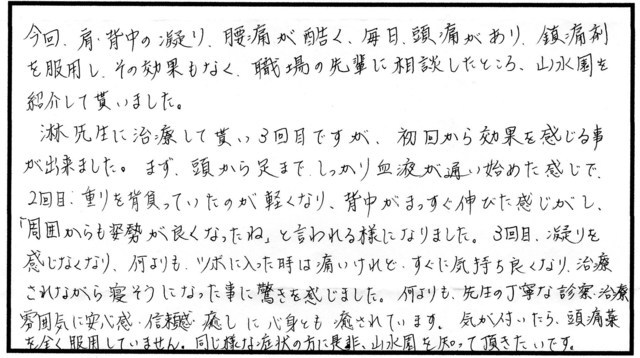 今回、肩・背中の凝り、腰痛が酷く、毎日、頭痛があり、鎮痛剤
を服用し、その効果もなく、職場の先輩に相談したところ、山水園を
紹介して貰いました。
淋先生に治療して貰い3回目ですが、初回から効果を感じる事
が出来ました。まず、頭から足まで、しっかり血液が通い始めた感じで、
2回目、重りを背負っていたのが軽くなり、背中がまっすぐ伸びた感じがし、
「周囲からも姿勢が良くなったね」と言われる様になりました。3回目、凝りを
感じなくなり、何よりも、ツボに入った時は痛いけれど、すぐに気持ち良くなり、治療
されながら寝そうになった事に驚きを感じました。何よりも、先生の丁寧な診察・治療
雰囲気に安心感・信頼感・癒しに心身とも癒されています。気が付いたら、頭痛薬
を全く服用していません。同じ様な症状の方に是非、山水園を知って頂きたいです。